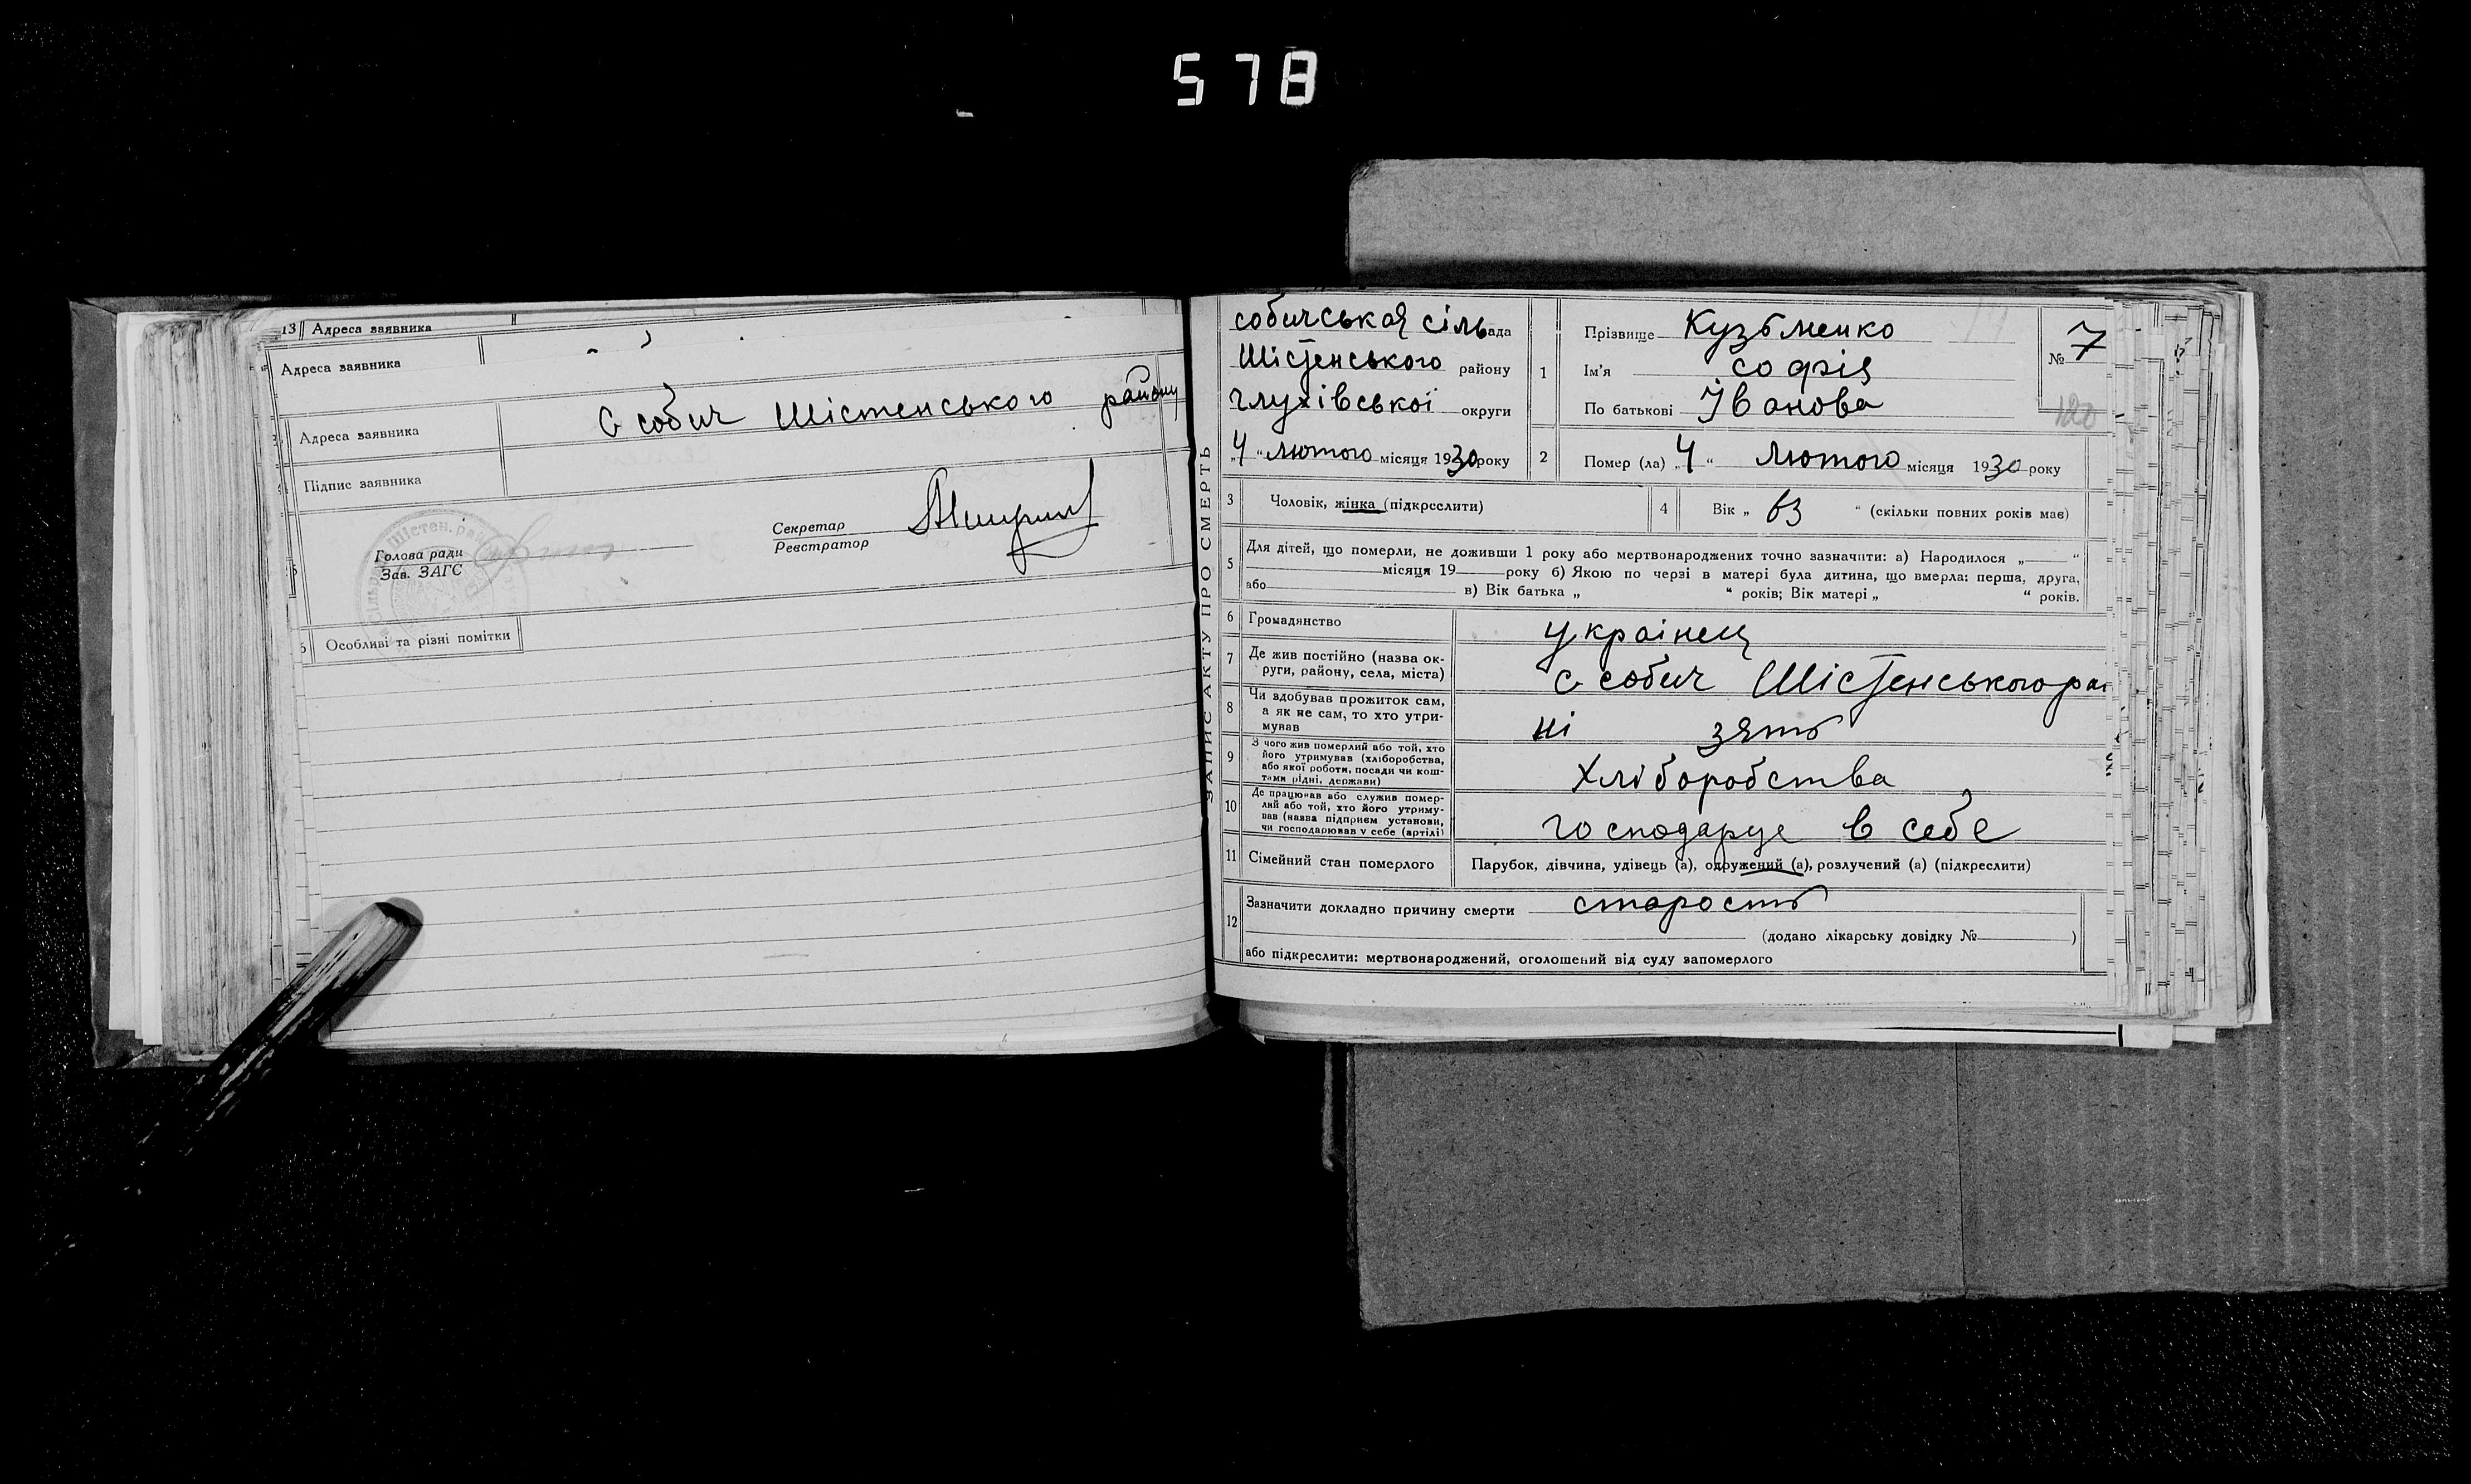 578
13 Адреса заявника
Адреса заявника
Адреса заявника с собич Шістенського району
Підпис заявника
Шістен. рай
Голова ради
Зав. ЗАГС
Секретар
Реєстратор
Особливі та різні помітки
ЗАПИС АКТУ ПРО СМЕРТЬ
собичськая сільрада
Шістенського району
глухівської округи
„4“ лютого місяця 1930 року
1
Прізвище Кузьменко
Ім'я софія
По батькові Іванова
№ 7
120
2 Помер (ла) „4“ лютого місяця 1930 року
3 Чоловік, жінка (підкреслити)
4 Вік „63“ (скільки повних років має)
5 Для дітей, що померли, не доживши 1 року або мертвонароджених точно зазначити: а) Народилося „ “
місяця 19 року б) Якою по черзі в матері була дитина, що вмерла: перша, друга,
або в) Вік батька „ “ років; Вік матері „ “ років.
6 Громадянство українец
7 Де жив постійно (назва ок-
руги, району, села, міста) с собич Шістенського ра
8 Чи здобував прожиток сам,
а як не сам, то хто утри-
мував ні зять
9 З чого жив померлий або той, хто
його утримував (хліборобства,
або якої роботи, посади чи кош-
тами рідні, держави) хліборобства
10 Де працював або служив помер-
лий або той, хто його утриму-
вав (назва підприєм установи,
чи господарював у себе (артілі) господарує в себе
11 Сімейний стан померлого Парубок, дівчина, удівець (а), одружений (а), розлучений (а) (підкреслити)
12 Зазначити докладно причину смерти старость
(додано лікарську довідку № )
або підкреслити: мертвонароджений, оголошений від суду запомерлого